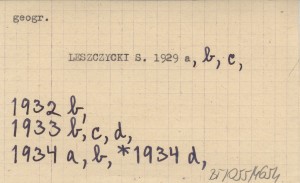 geogr.
LESZCZYCKI S. 1929 a, b, c,
1932 b,
1933 b, c, d,
1934 a, b, *1934 d,